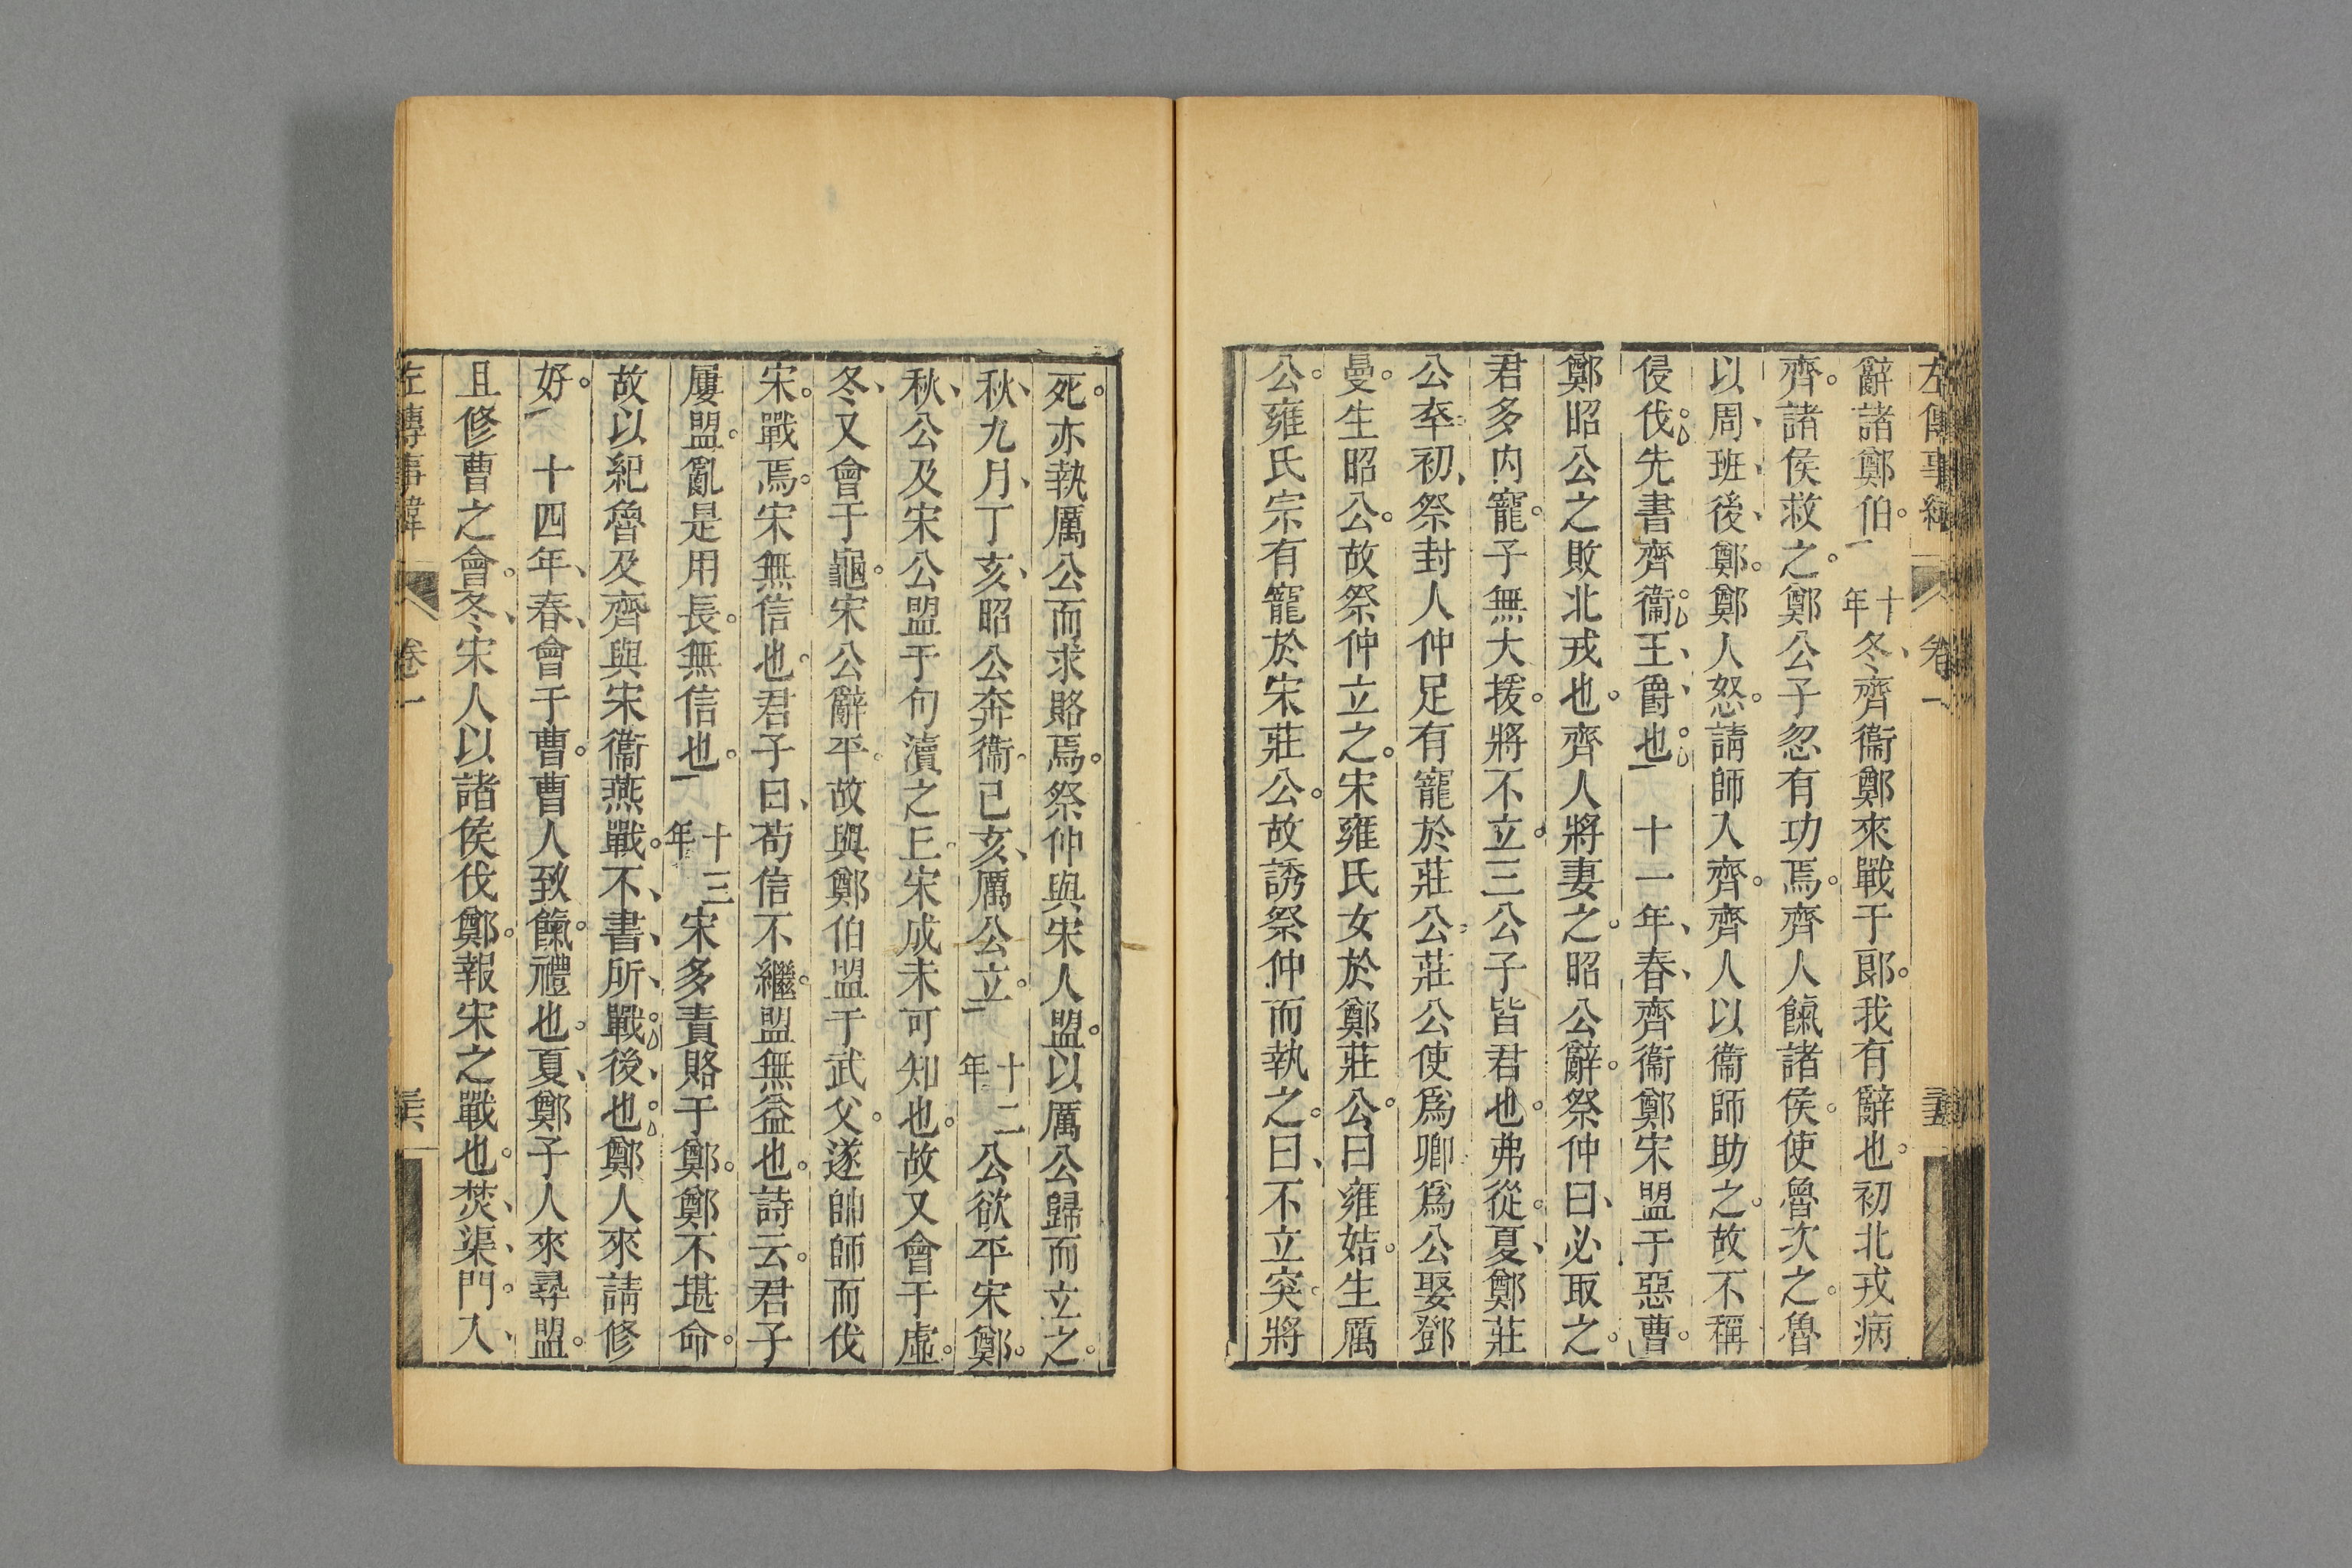 辭諸鄭伯。十年冬、齊衞鄭來戰于郎。我有辭也。初北戎病
齊。諸侯救之。鄭公子忽有功焉。齊人餼諸侯。使魯次之。魯
以周、班、後、鄭。鄭人怒。請師入齊。齊人以衞師助之。故不稱
侵伐。先書齊衞。王、爵、也。十一年、春、齊衞鄭宋盟于惡曹。
鄭昭公之敗北戎也。齊人將妻之。昭公辭。祭仲曰、必取之。
君多内寵。子無大援。將不立。三公子皆君也。弗從。夏、鄭莊
公卒。初、祭封人仲足有寵於莊公。莊公使爲卿。爲公娶鄧
曼。生昭公。故祭仲立之。宋雍氏女於鄭莊公。曰雍姞。生厲
公。雍氏宗有寵於宋莊公。故誘祭仲而執之。曰、不立突。將
死。亦執厲公而求賂焉。祭仲與宋人盟。以厲公歸而立之。
秋、九月、丁亥、昭公奔衞。已亥、厲公立。十二年公欲平宋鄭。
秋、公及宋公盟于句瀆之丘。宋成未可知也。故又會于虛。
冬、又會于龜。宋公辭平。故與鄭伯盟于武父。遂帥師而伐
宋。戰焉。宋無信也。君子曰、苟信不繼。盟無益也。詩云。君子
屢盟。亂是用長。無信也。十三年宋多責賂于鄭。鄭不堪命。
故以紀魯及齊與宋衞燕戰。不、書、所、戰。後、也。鄭人來請修
好。十四年、春、會于曹。曹人致餼。禮也。夏、鄭子人來尋盟。
且修曹之會。冬、宋人以諸侯伐鄭。報宋之戰也。焚、渠、門。入、
左傳事緯 卷一